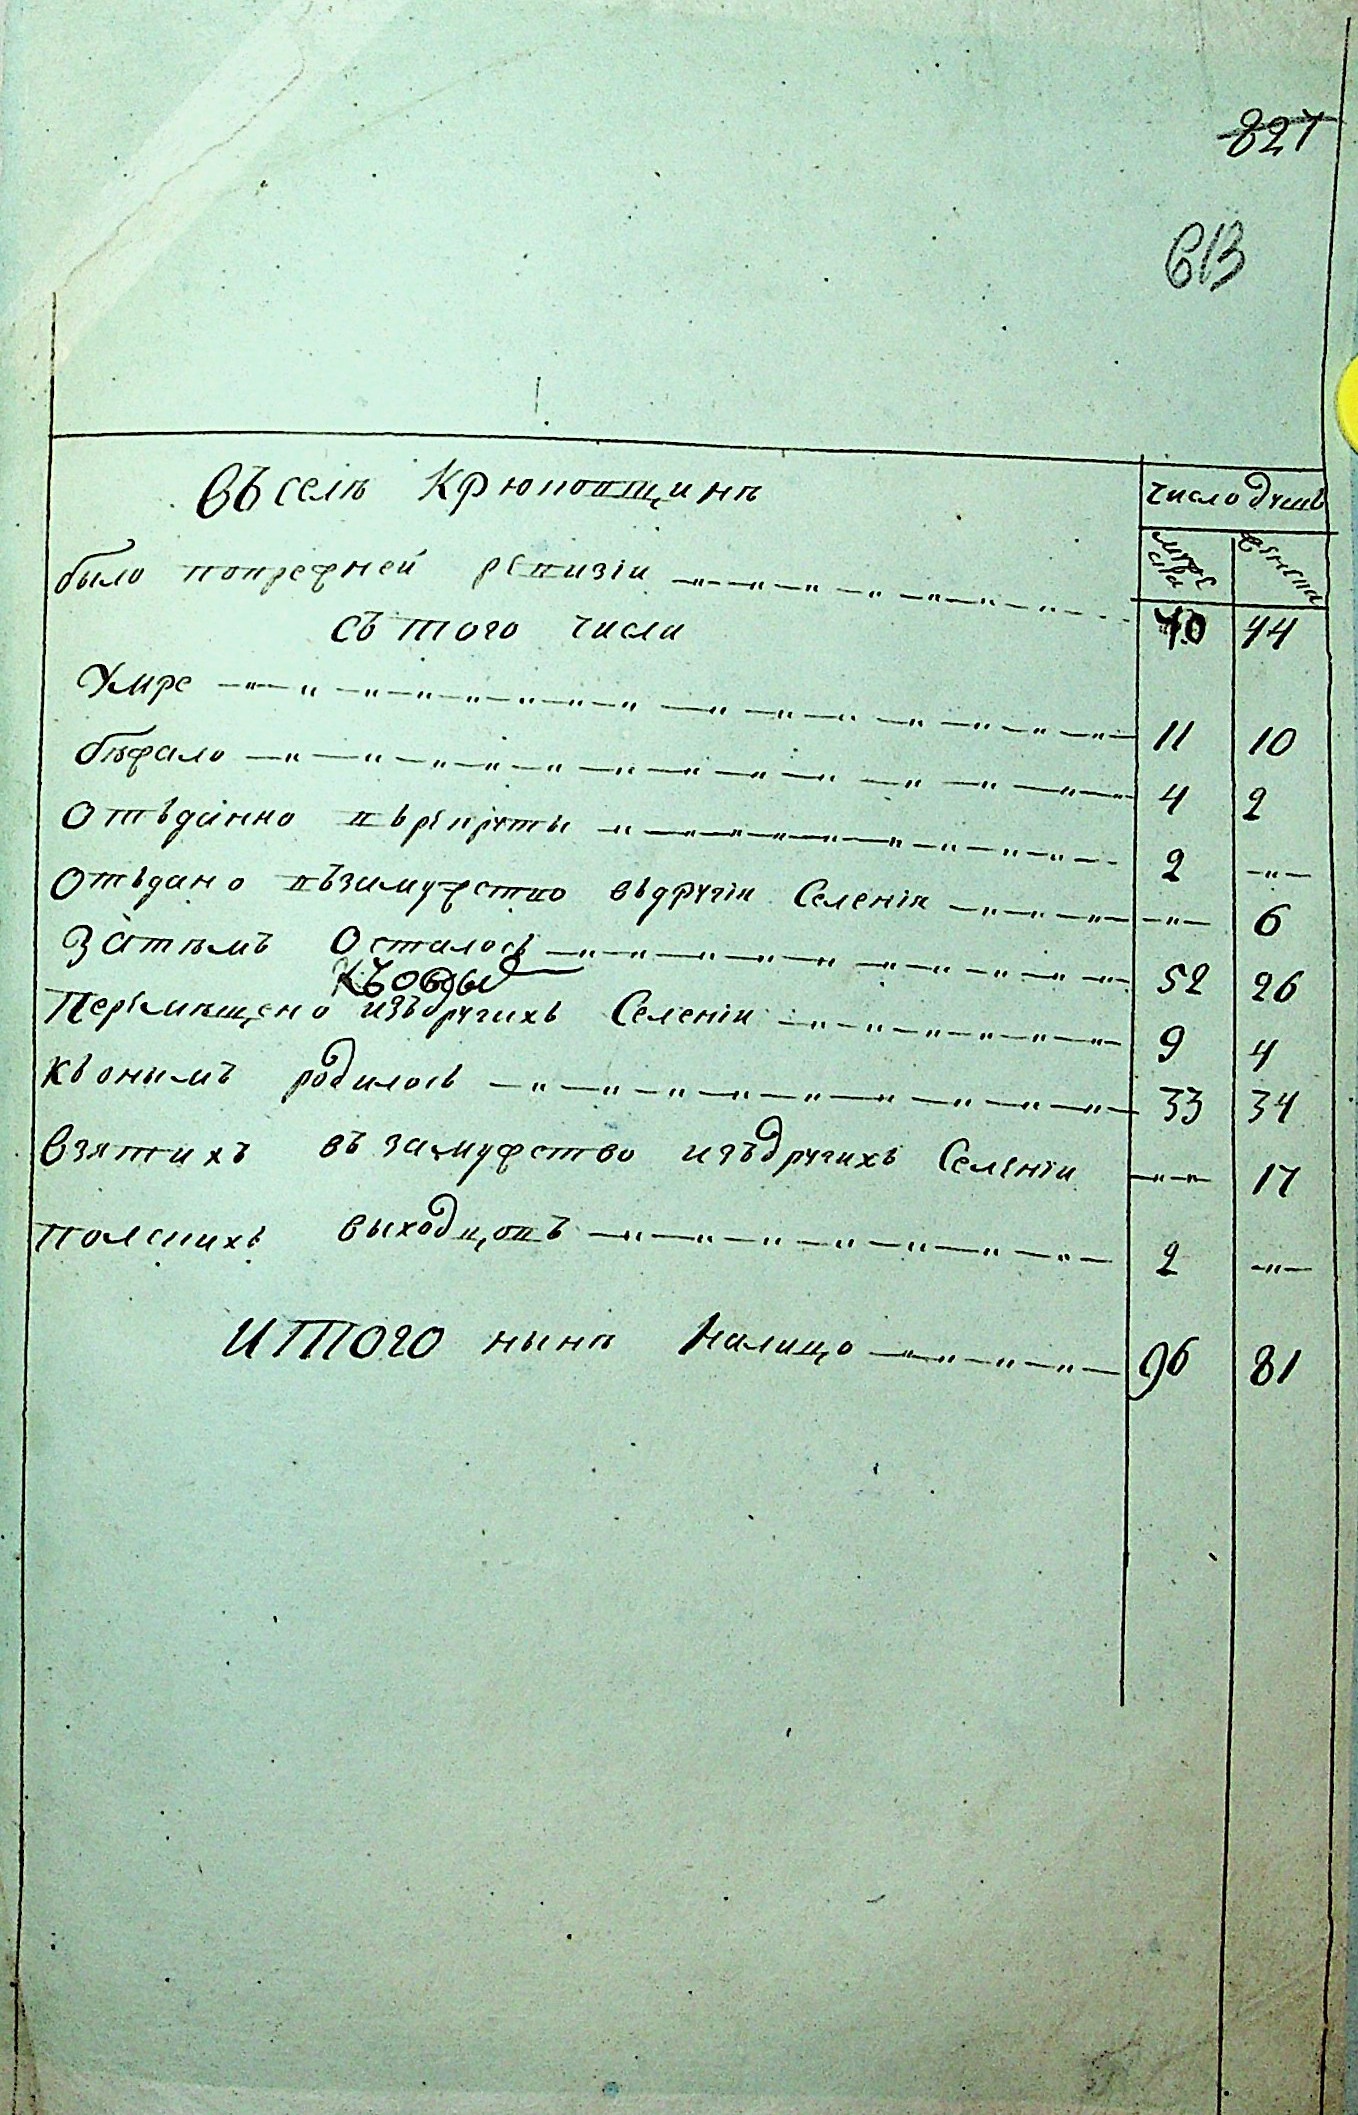 827
613
Въ селѣ Крюковщинѣ
число душъ
мужеска
женска
было попрежней ревизіи 70 44
съ того числа
Умре 11 10
бѣжало 4 2
Отъданно въ рекруты 2 —"—
Отъдано въ замужство въ другія Селенія —"— 6
Затѣмъ Осталось 52 26
къ онымъ
Перемѣщено изъ другихъ Селеніи 9 4
къ онымъ родилось 33 34
взятихъ въ замужство изъ другихъ Селеніи —"— 17
полскихъ выходцовъ 2 —"—
ИТОГО нынѣ налицо 96 81